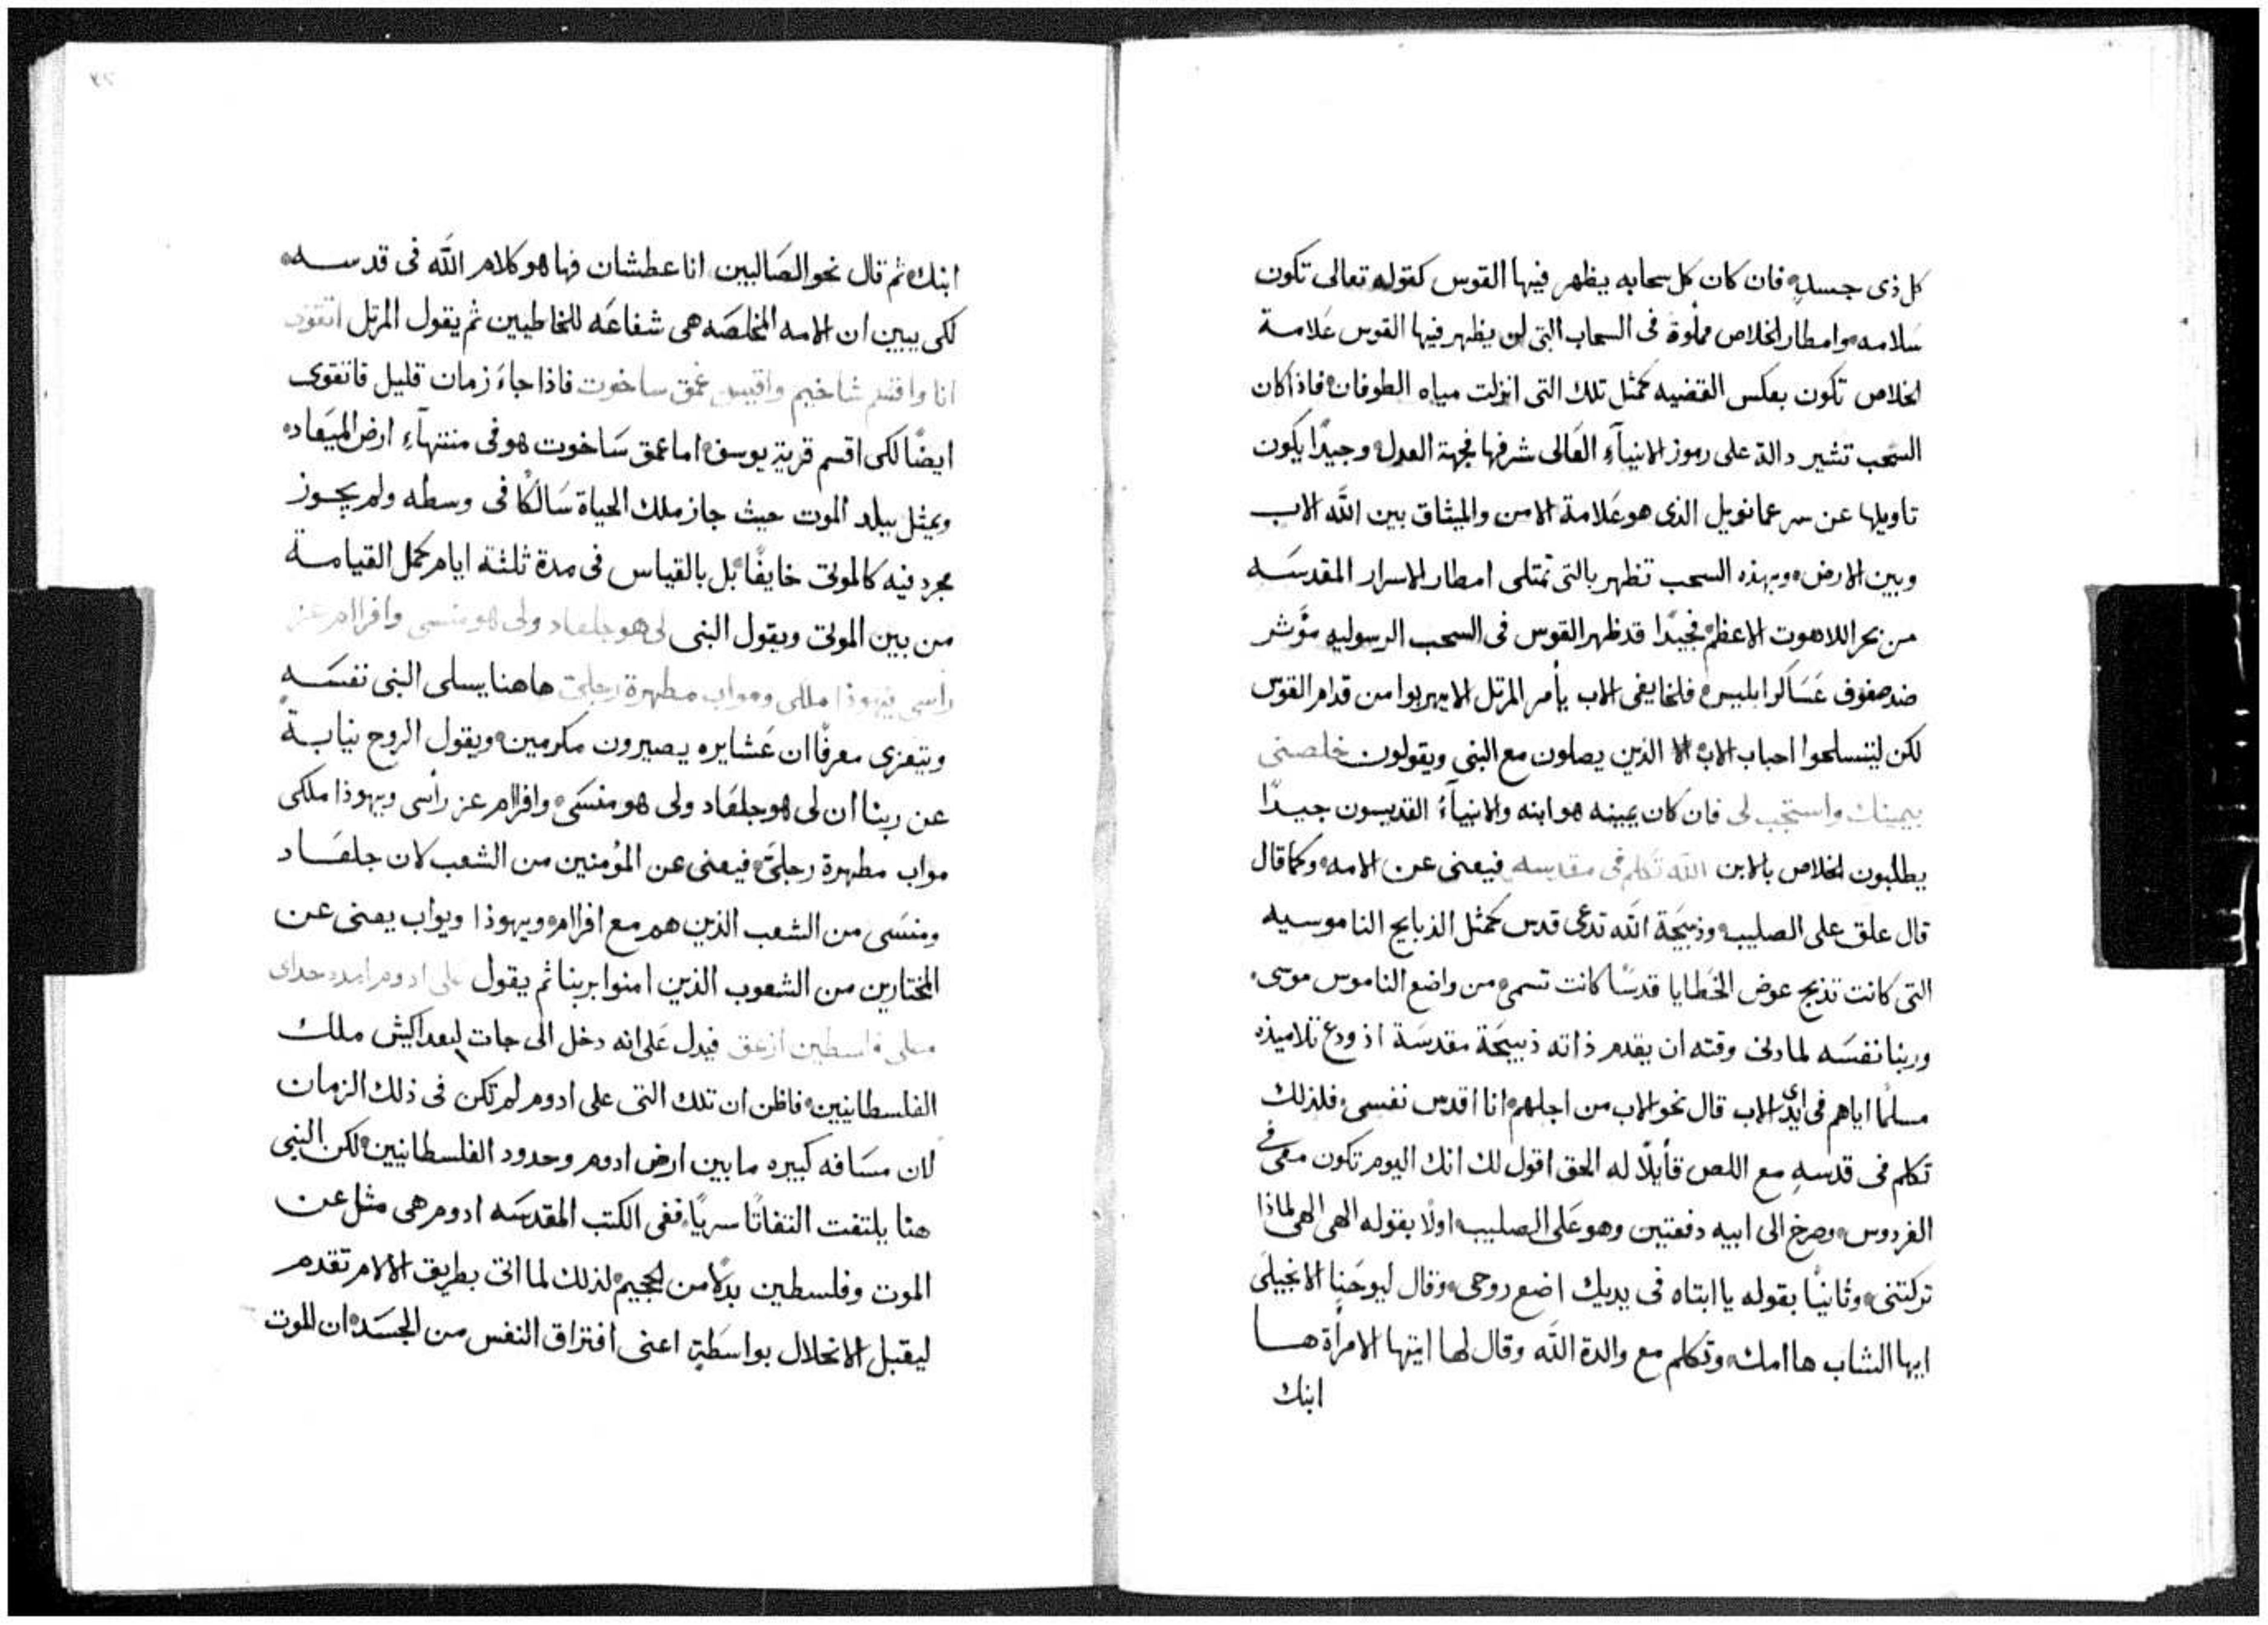 كل ذى جسد فان كان كل سحابه يظهر فيها القوس كقوله تعالى تكون
سَلامه وامطار الخلاص مملوة فى السحاب التى لن يظهر فيها القوس عَلامة
الخلاص تكون بعكس القضيه كمثل تلك التى انزلت مياه الطوفان فاذا كان
السُحب تشير دالة على رموز الانبيآءِ العَالى شرفها فجهة العدل وجيدًا يكون
تاويلها عن سر عمانويل الذى هو عَلامة الامن والميثاق بين الله الاب
وبين الارض وبهذه السحب تظهر بالتى تمتلى امطار الاسرار المقدسَه
من بحر اللاهوت الاعظم فجيدًا قد ظهر القوس فى السحب الرسوليه مؤشر
ضد صفوف عَسَاكر ابليس فلخايفى الاب يأمر المرتل الا يهربوا من قدام القوس
لكن ليتسلحوا احباب الاب الا الذين يصلون مع النبى ويقولون خلصنى
بيمينك واستجب لى فان كان يمينه هو ابنه والانبيآءُ القديسون جيدًا
يطلبون الخلاص بالابن الله تكلم فى مقادسه فيعنى عن الامه وكما قال
قال علق على الصليب وذبيحَة الله تدعى قدس كمثل الذبايح الناموسيه
التى كانت تذبح عوض الخَطايا قدسًا كانت تسمى من واضع الناموس موسى
وربنا نفسَه لما دنى وقته ان يقدم ذاته ذبيحَة مقدسَة اذ ودع تلاميذه
مسلمًا اياهم فى ايدى الاب قال نحو الاب من اجلهم انا اقدس نفسى فلذلك
تكلم فى قدسهِ مع اللص قأيلًا له الحق اقول لك انك اليوم تكون معى فى
الفردوس وصرخ الى ابيه دفعتين وهو عَلى الصليب اولًا بقوله الهى الهى لماذا
تركتنى وثانيًا بقوله يا ابتاه فى يديك اضع روحى وقال ليوحَنا الانجيلى
ايها الشاب ها امك وتكلم مع والدة الله وقال لها ايتها الامرأة هـا
ابنك
ابنك ثم قال نحو الصَالبين انا عطشان فها هو كلام الله فى قدسـه
لكى يبين ان الامه المخلصَه هى شفاعَه للخاطيين ثم يقول المرتل اتقوى
انا واقسم شاخيم واقيس عمق ساخوت فاذا جاءَ زمان قليل فاتقوى
ايضًا لكى اقسم قرية يوسف اما عمق سَاخوت هو فى منتهآءِ ارض الميَعاد
ويمثل ببلد الموت حيث جاز ملك الحياة سَالكًا فى وسطه ولم يجـوز
مجرد فيه كالموتى خايفًا بل بالقياس فى مدة ثلثة ايام كمل القيامـة
من بين الموتى ويقول النبى لى هو جلعاد ولى هو منسى وافرام عز
رأسى يهوذا ملكى وموآب مطهرة رجلى هاهنا يسلى النبى نفسَـه
ويتعزى معرفًا ان عَشايره يصيرون مكرمين ويقول الروح نيابـة
عن ربنا ان لى هو جلعَاد ولى هو منسَى وافرام عز رأسى ويهوذا ملكى
مواب مطهرة رجلىَ فيعنى عن المؤمنين من الشعب لان جلعَـاد
ومنسَى من الشعب الذين هم مع افرام ويهوذا ويواب يعنى عن
المختارين من الشعوب الذين امنوا بربنا ثم يقول على ادوم امدد حداى
وعلى فلسطين ازعق فيدل عَلى انه دخل الى جات لبعد اكيش ملك
الفلسطانيين فاظن ان تلك التى على ادوم لم تكن فى ذلك الزمان
لان مسَافه كبيره ما بين ارض ادوم وحدود الفلسطانيين لكن النبى
هنا يلتفت التفاتًا سريًا ففى الكتب المقدسَه ادوم هى مثل عن
الموت وفلسطين بدلًا من الجحيم لذلك لما اتى بطريق الالام تقدم
ليقبل الانحلال بواسَطةِ اعنى افتراق النفس من الجسَد ان الموت